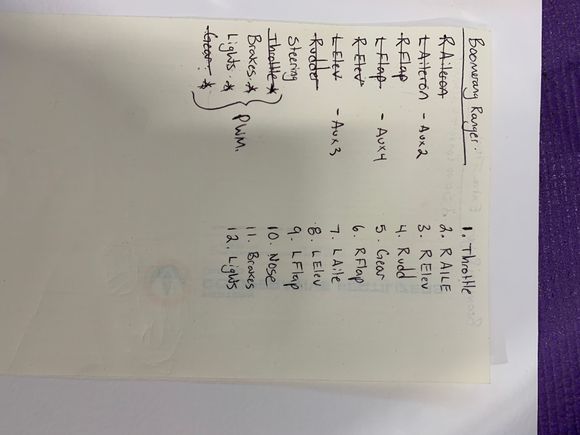 Boomerang Ranger.
R Aileron
L Aileron - Aux2
R Flap
L Flap - Aux4
R Elev
L Elev - Aux3
Rudder
Steering
Throttle *
Brakes. *
Lights. *
Gear. *
PWM.
1. Throttle
2. R AILE
3. R Elev
4. Rudd
5. Gear
6. R Flap
7. L Aile
8. L Elev
9. L Flap
10. Nose
11. Brakes
12. Lights